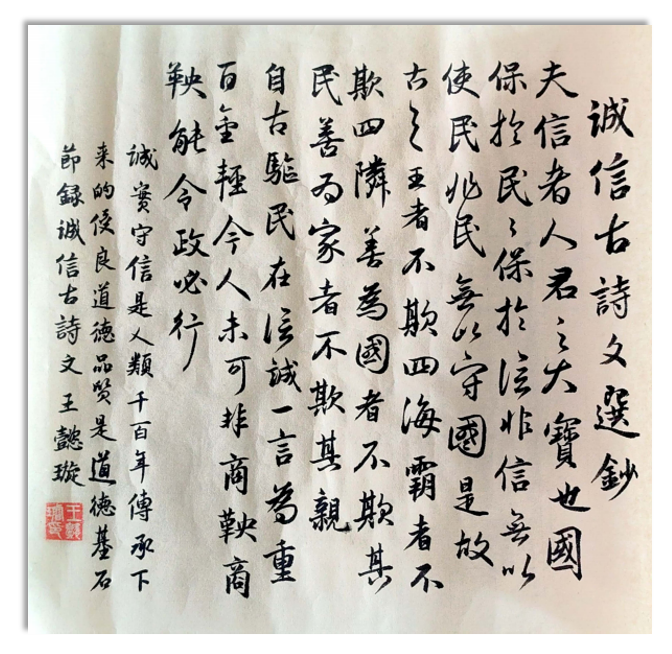 诚信古詩文選鈔
夫信者人君之大寶也國
保於民〻保於信非信無以
使民非民無以守國是故
古之王者不欺四海霸者不
欺四隣善為國者不欺其
民善为家者不欺其親
自古駈民在信誠一言為重
百金輕今人未可非商鞅商
鞅能令政必行
誠實守信是人類千百年傳承下
来的優良道德品質是道德基石
節録诚信古詩文王懿璇